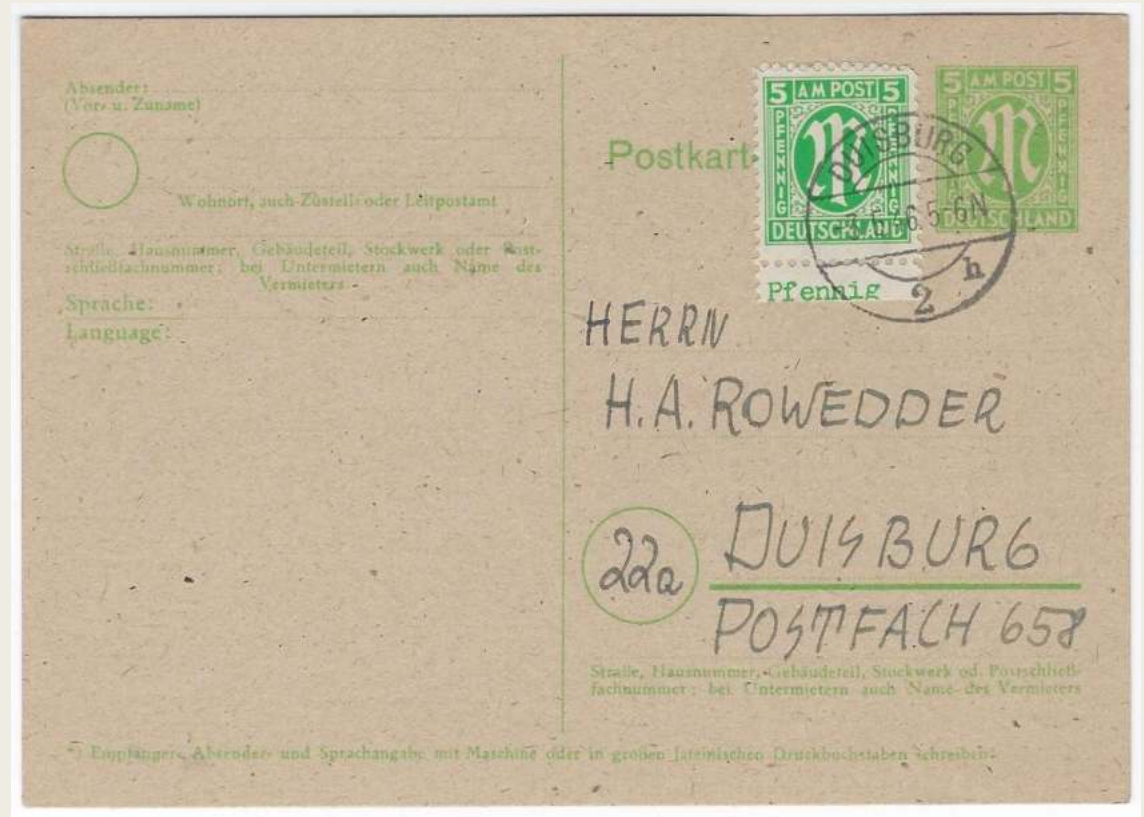 Absender:
(Vor- u. Zuname)
Wohnort, auch Zustell- oder Leitpostamt
Straße, Hausnummer, Gebäudeteil, Stockwerk oder Post-
schließfachnummer; bei Untermietern auch Name des
Vermieters
Sprache:
Language:
Postkart
5 AM POST 5
PFENNIG
PFENNIG
DEUTSCHLAND
Pfennig
5 AM POST 5
PFENNIG
PFENNIG
DEUTSCHLAND
DUISBURG
5-6N
2 h
HERRN
H.A. ROWEDDER
22a
DUISBURG
POSTFACH 658
Straße, Hausnummer, Gebäudeteil, Stockwerk od. Postschließ-
fachnummer; bei Untermietern auch Name des Vermieters
*) Empfänger-, Absender- und Sprachangabe mit Maschine oder in großen lateinischen Druckbuchstaben schreiben.